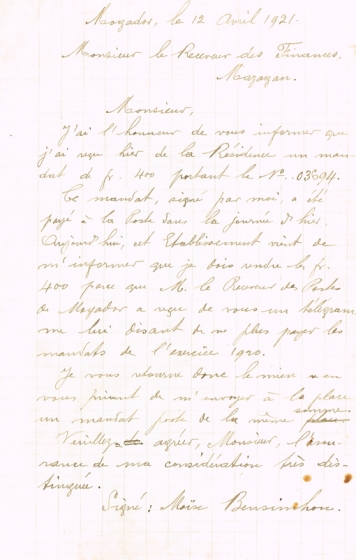 Mogador, le 12 Avril 1921.
Monsieur le Receveur des Finances.
Mazagan.
Monsieur,
J'ai l'honneur de vous informer que
j'ai reçu hier de la Résidence un man-
dat de fr. 400 portant le No. 03694.
Ce mandat, signé par moi, a été
payé à la Poste dans la journée d'hier.
Aujourd'hui, cet Etablissement vient de
m'informer que je dois rendre les fr.
400 parce que M. le Receveur des Postes
de Mogador a reçu de vous un télégram
me lui disant de ne plus payer les
mandats de l'exercice 1920.
Je vous retourne donc le mien en
vous priant de m'envoyer à la place
un mandat poste de la même somme.
Veuillez agréer, Monsieur, l'assu-
rance de ma considération très dis-
tinguée.
Signé: Moïse Bensimhon.